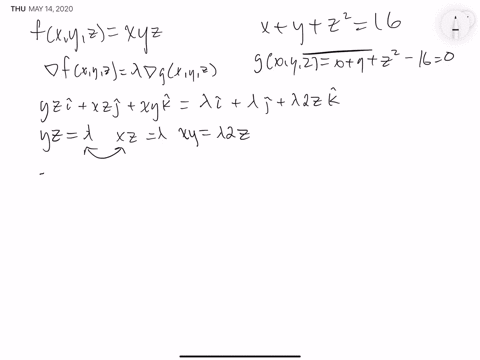 THU MAY 14, 2020
f(x,y,z) = xyz
x + y + z² = 16
∇f(x,y,z) = λ∇g(x,y,z)
g(x,y,z) = x + y + z² - 16 = 0
yz î + xz ĵ + xy k̂ = λ î + λ ĵ + λ2z k̂
yz = λ xz = λ xy = λ2z